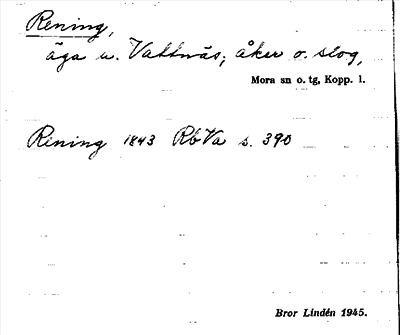 Rening,
äga u. Vattnäs; åker o. slog,
Mora sn o. tg, Kopp. l.
Rining 1843 RbVa s. 390
Bror Lindén 1945.